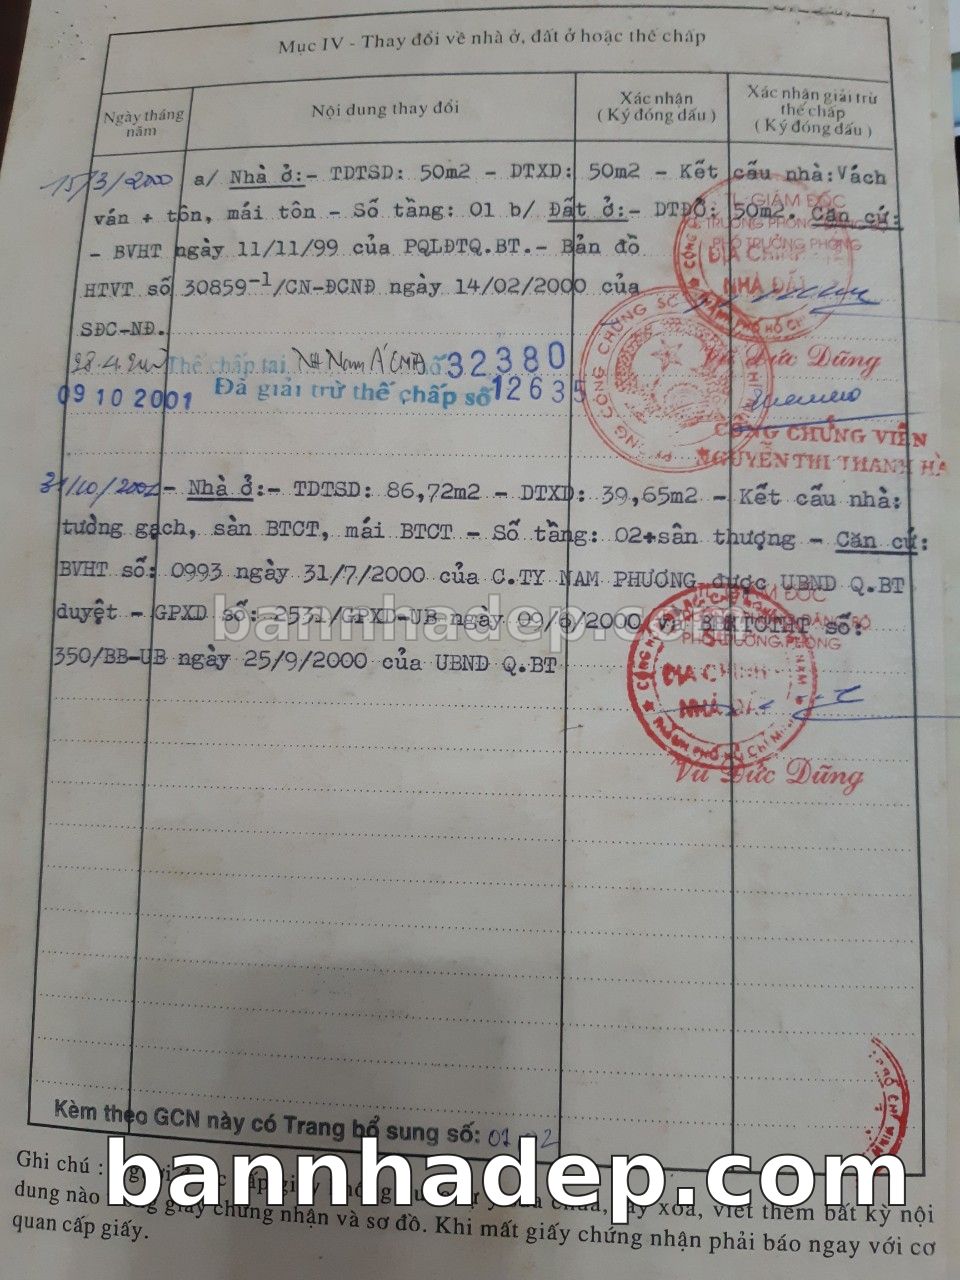 Mục IV - Thay đổi về nhà ở, đất ở hoặc thế chấp
Ngày tháng năm
Nội dung thay đổi
Xác nhận
( Ký đóng dấu )
Xác nhận giải trừ
thế chấp
( Ký đóng dấu )
15/3/2000 a/ Nhà ở:- TDTSD: 50m2 - DTXD: 50m2 - Kết cấu nhà: Vách
ván + tôn, mái tôn - Số tầng: 01 b/ Đất ở:- DTĐO: 50m2. Căn cứ:
- BVHT ngày 11/11/99 của PQLĐTQ.BT.- Bản đồ
HTVT số 30859-1/CN-ĐCNĐ ngày 14/02/2000 của
SĐC-NĐ.
TL. GIÁM ĐỐC
PHÓ TRƯỞNG PHÒNG
ĐỊA CHÍNH
NHÀ ĐẤT
Vũ Đức Dũng
Thế chấp tại NH Nam Á số 32380
09 10 2001 Đã giải trừ thế chấp số 12635
PHÒNG CÔNG CHỨNG SỐ
CÔNG CHỨNG VIÊN
NGUYỄN THỊ THANH HÀ
- Nhà ở:- TDTSD: 86,72m2 - DTXD: 39,65m2 - Kết cấu nhà:
tường gạch, sàn BTCT, mái BTCT - Số tầng: 02+sân thượng - Căn cứ:
BVHT số: 0993 ngày 31/7/2000 của C.TY NAM PHƯƠNG được UBND Q.BT
duyệt - GPXD số: 2531/GPXD-UB ngày 09/6/2000 và số:
350/BB-UB ngày 25/9/2000 của UBND Q.BT
bannhadep.com
PHÓ TRƯỞNG PHÒNG
ĐỊA CHÍNH
NHÀ ĐẤT
Vũ Đức Dũng
Kèm theo GCN này có Trang bổ sung số: 01 02
bannhadep.com
Ghi chú : xóa, viết thêm bất kỳ nội
dung nào giấy chứng nhận và sơ đồ. Khi mất giấy chứng nhận phải báo ngay với cơ
quan cấp giấy.